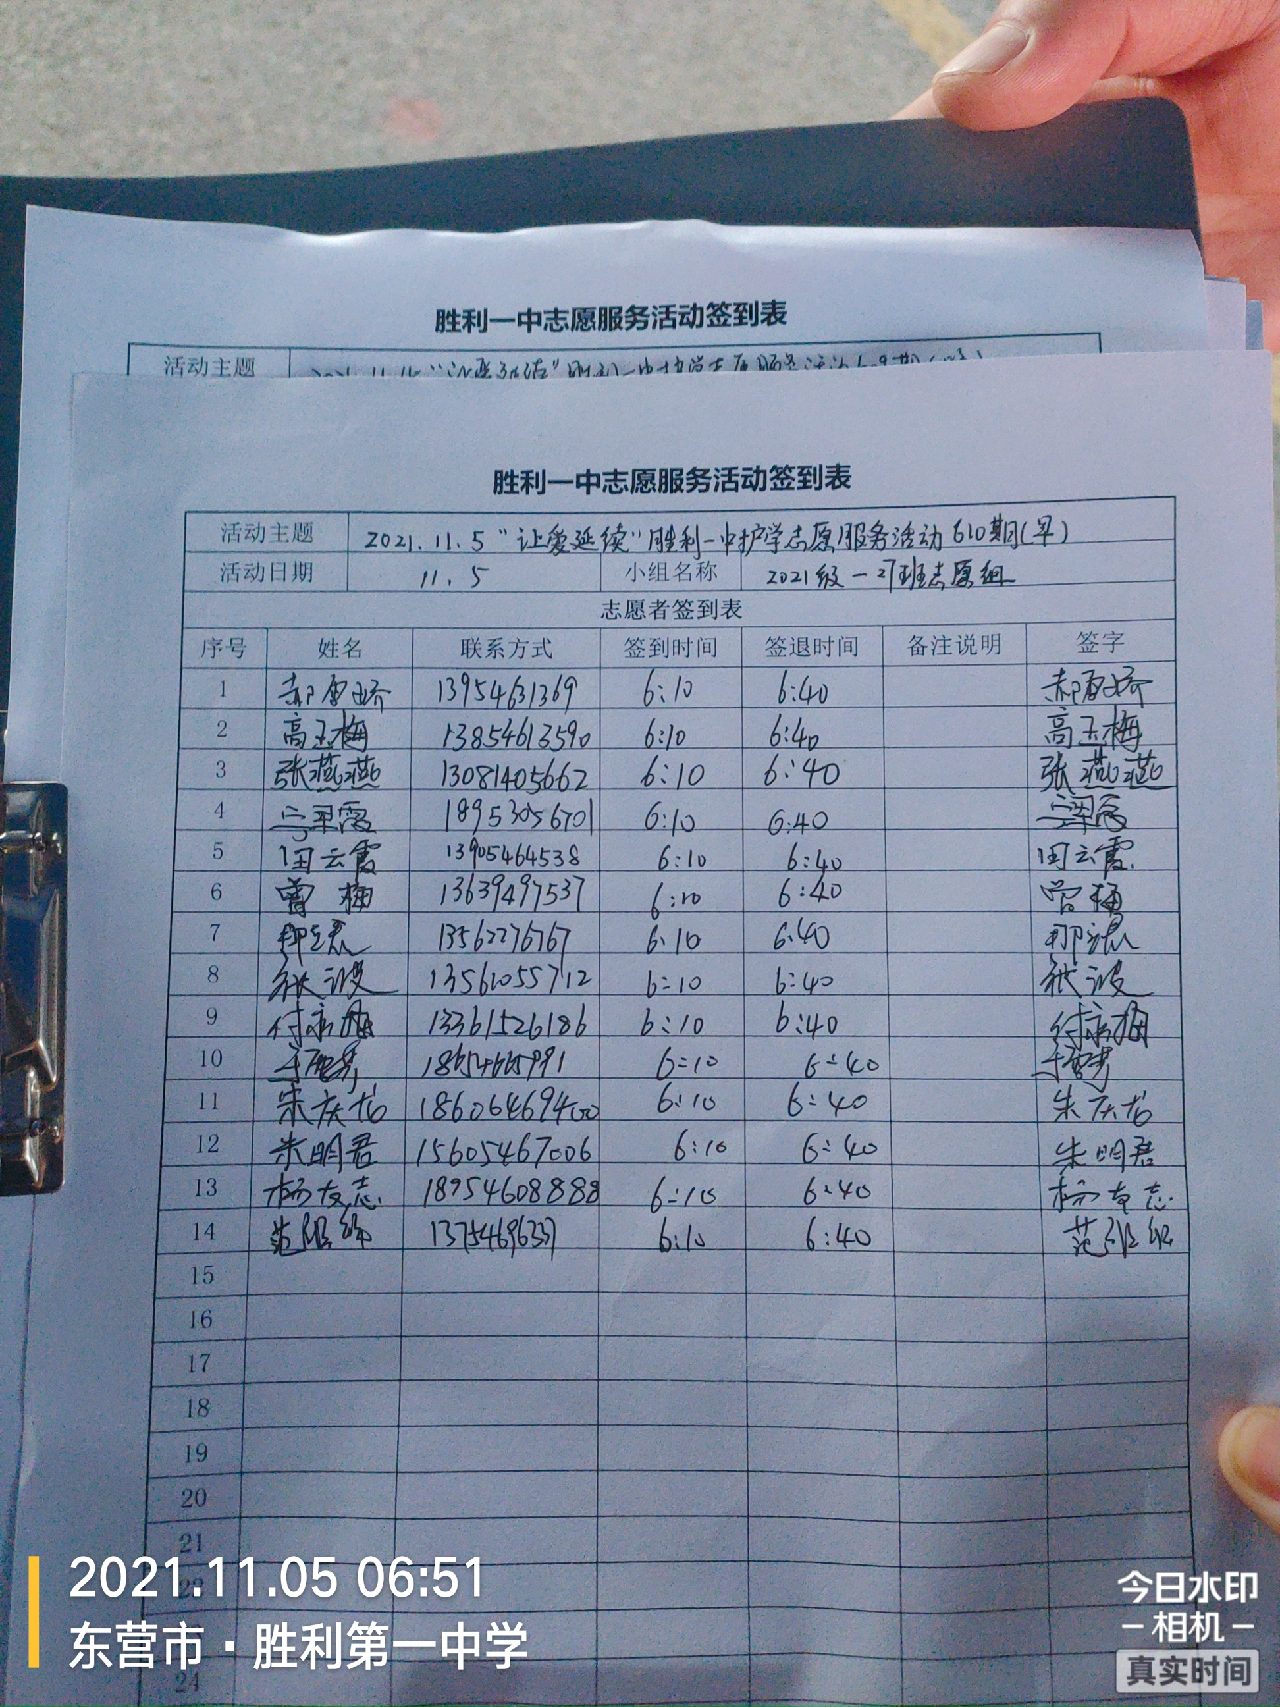 胜利一中志愿服务活动签到表
活动主题
胜利一中志愿服务活动签到表
活动主题 2021.11.5“让爱延续”胜利一中护学志愿服务活动610期(早)
活动日期 11.5 小组名称 2021级一27班志愿组
志愿者签到表
序号 姓名 联系方式 签到时间 签退时间 备注说明 签字
1 13954631369 6:10 6:40
2 高玉梅 13854613590 6:10 6:40 高玉梅
3 张燕燕 13081405662 6:10 6:40 张燕燕
4 18953056701 6:10 6:40
5 田云霞 13905464538 6:10 6:40 田云霞
6 曾梅 13639497537 6:10 6:40 曾梅
7 13562276767 6:10 6:40
8 张波 13561055712 6:10 6:40 张波
9 付永梅 13361526186 6:10 6:40 付永梅
10 6:10 6:40
11 朱庆龙 6:10 6:40 朱庆龙
12 朱明君 15605467006 6:10 6:40 朱明君
13 杨友志 18954608888 6:10 6:40 杨友志
14 6:10 6:40
15
16
17
18
19
20
21
24
2021.11.05 06:51
东营市·胜利第一中学
今日水印
-相机-
真实时间